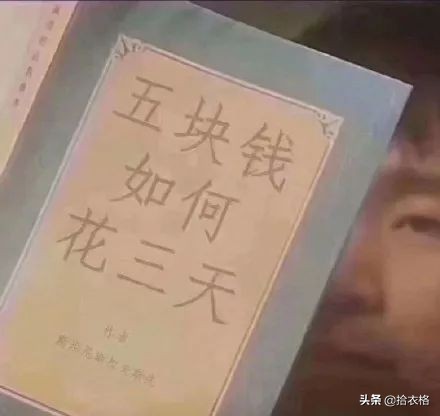 五块钱
如何
花三天
作者
头条 @拾衣格